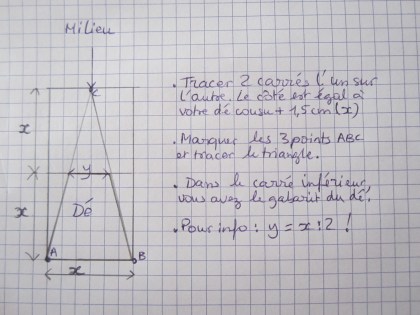 Milieu
C
. Tracer 2 carrés l'un sur
l'autre. Le côté est égal à
votre dé cousu + 1,5 cm (x)
. Marquer les 3 points ABC
et tracer le triangle.
. Dans le carré inférieur,
vous avez le gabarit du dé.
. Pour info : y = x : 2 !
x
y
x
Dé
A
B
x